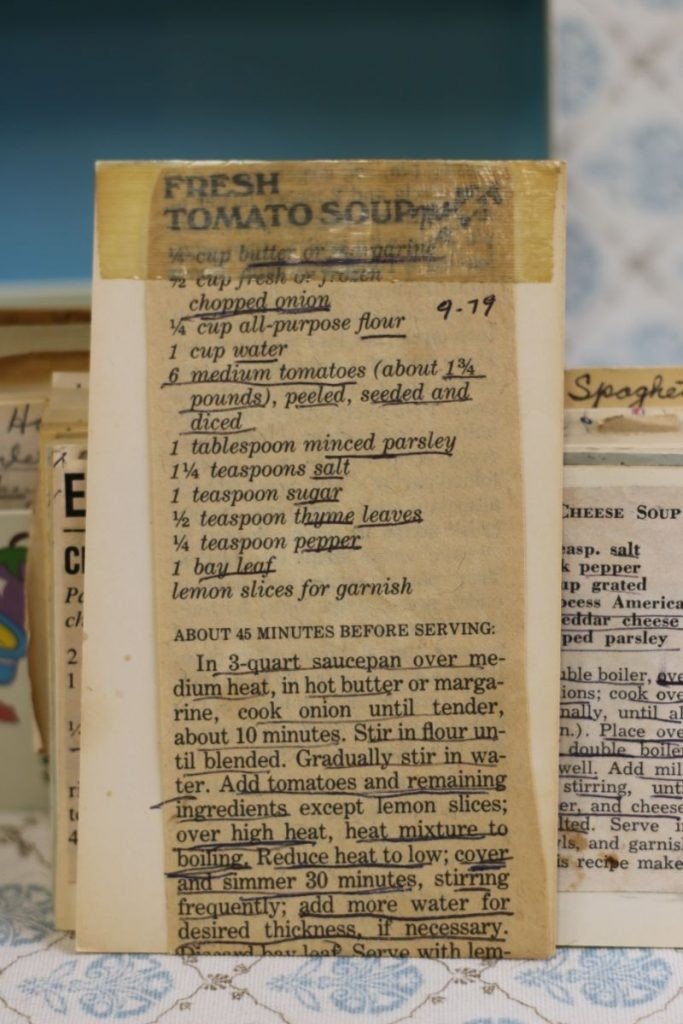 FRESH
TOMATO SOUP
¼ cup butter or margarine
½ cup fresh or frozen
chopped onion
9-79
¼ cup all-purpose flour
1 cup water
6 medium tomatoes (about 1¾
pounds), peeled, seeded and
diced
1 tablespoon minced parsley
1¼ teaspoons salt
1 teaspoon sugar
½ teaspoon thyme leaves
¼ teaspoon pepper
1 bay leaf
lemon slices for garnish
ABOUT 45 MINUTES BEFORE SERVING:
In 3-quart saucepan over me-
dium heat, in hot butter or marga-
rine, cook onion until tender,
about 10 minutes. Stir in flour un-
til blended. Gradually stir in wa-
ter. Add tomatoes and remaining
ingredients except lemon slices;
over high heat, heat mixture to
boiling. Reduce heat to low; cover
and simmer 30 minutes, stirring
frequently; add more water for
desired thickness, if necessary.
Discard bay leaf. Serve with lem-
Spaghet
CHEESE SOUP
easp. salt
k pepper
up grated
ocess America
eddar cheese
ped parsley
uble boiler, ove
ions; cook ove
nally, until al
n.). Place ove
double boiler
well. Add mil
stirring, unti
er, and cheese
lted. Serve i
ls, and garnis
is recipe make